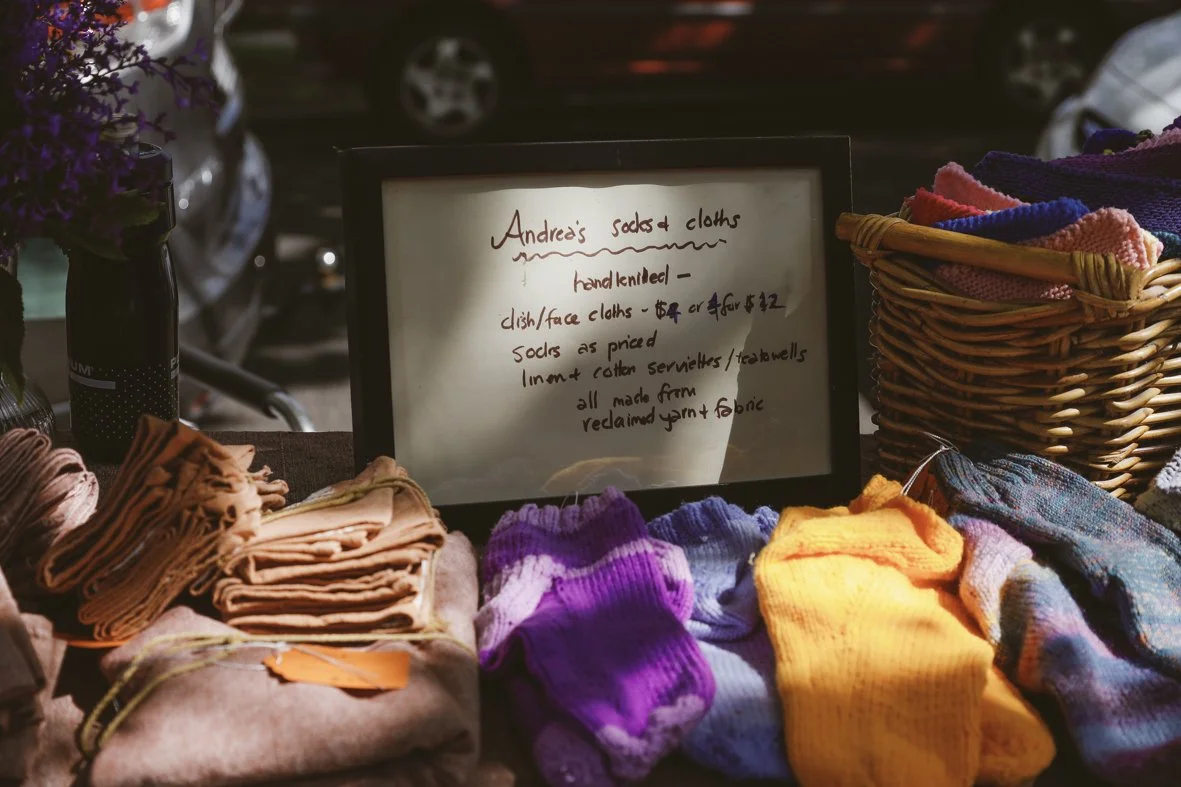 Andrea's socks & cloths
handknitted -
dish/face cloths - $4 or 4 for $12
socks as priced
linen + cotton serviettes/teatowells
all made from
reclaimed yarn + fabric
UM